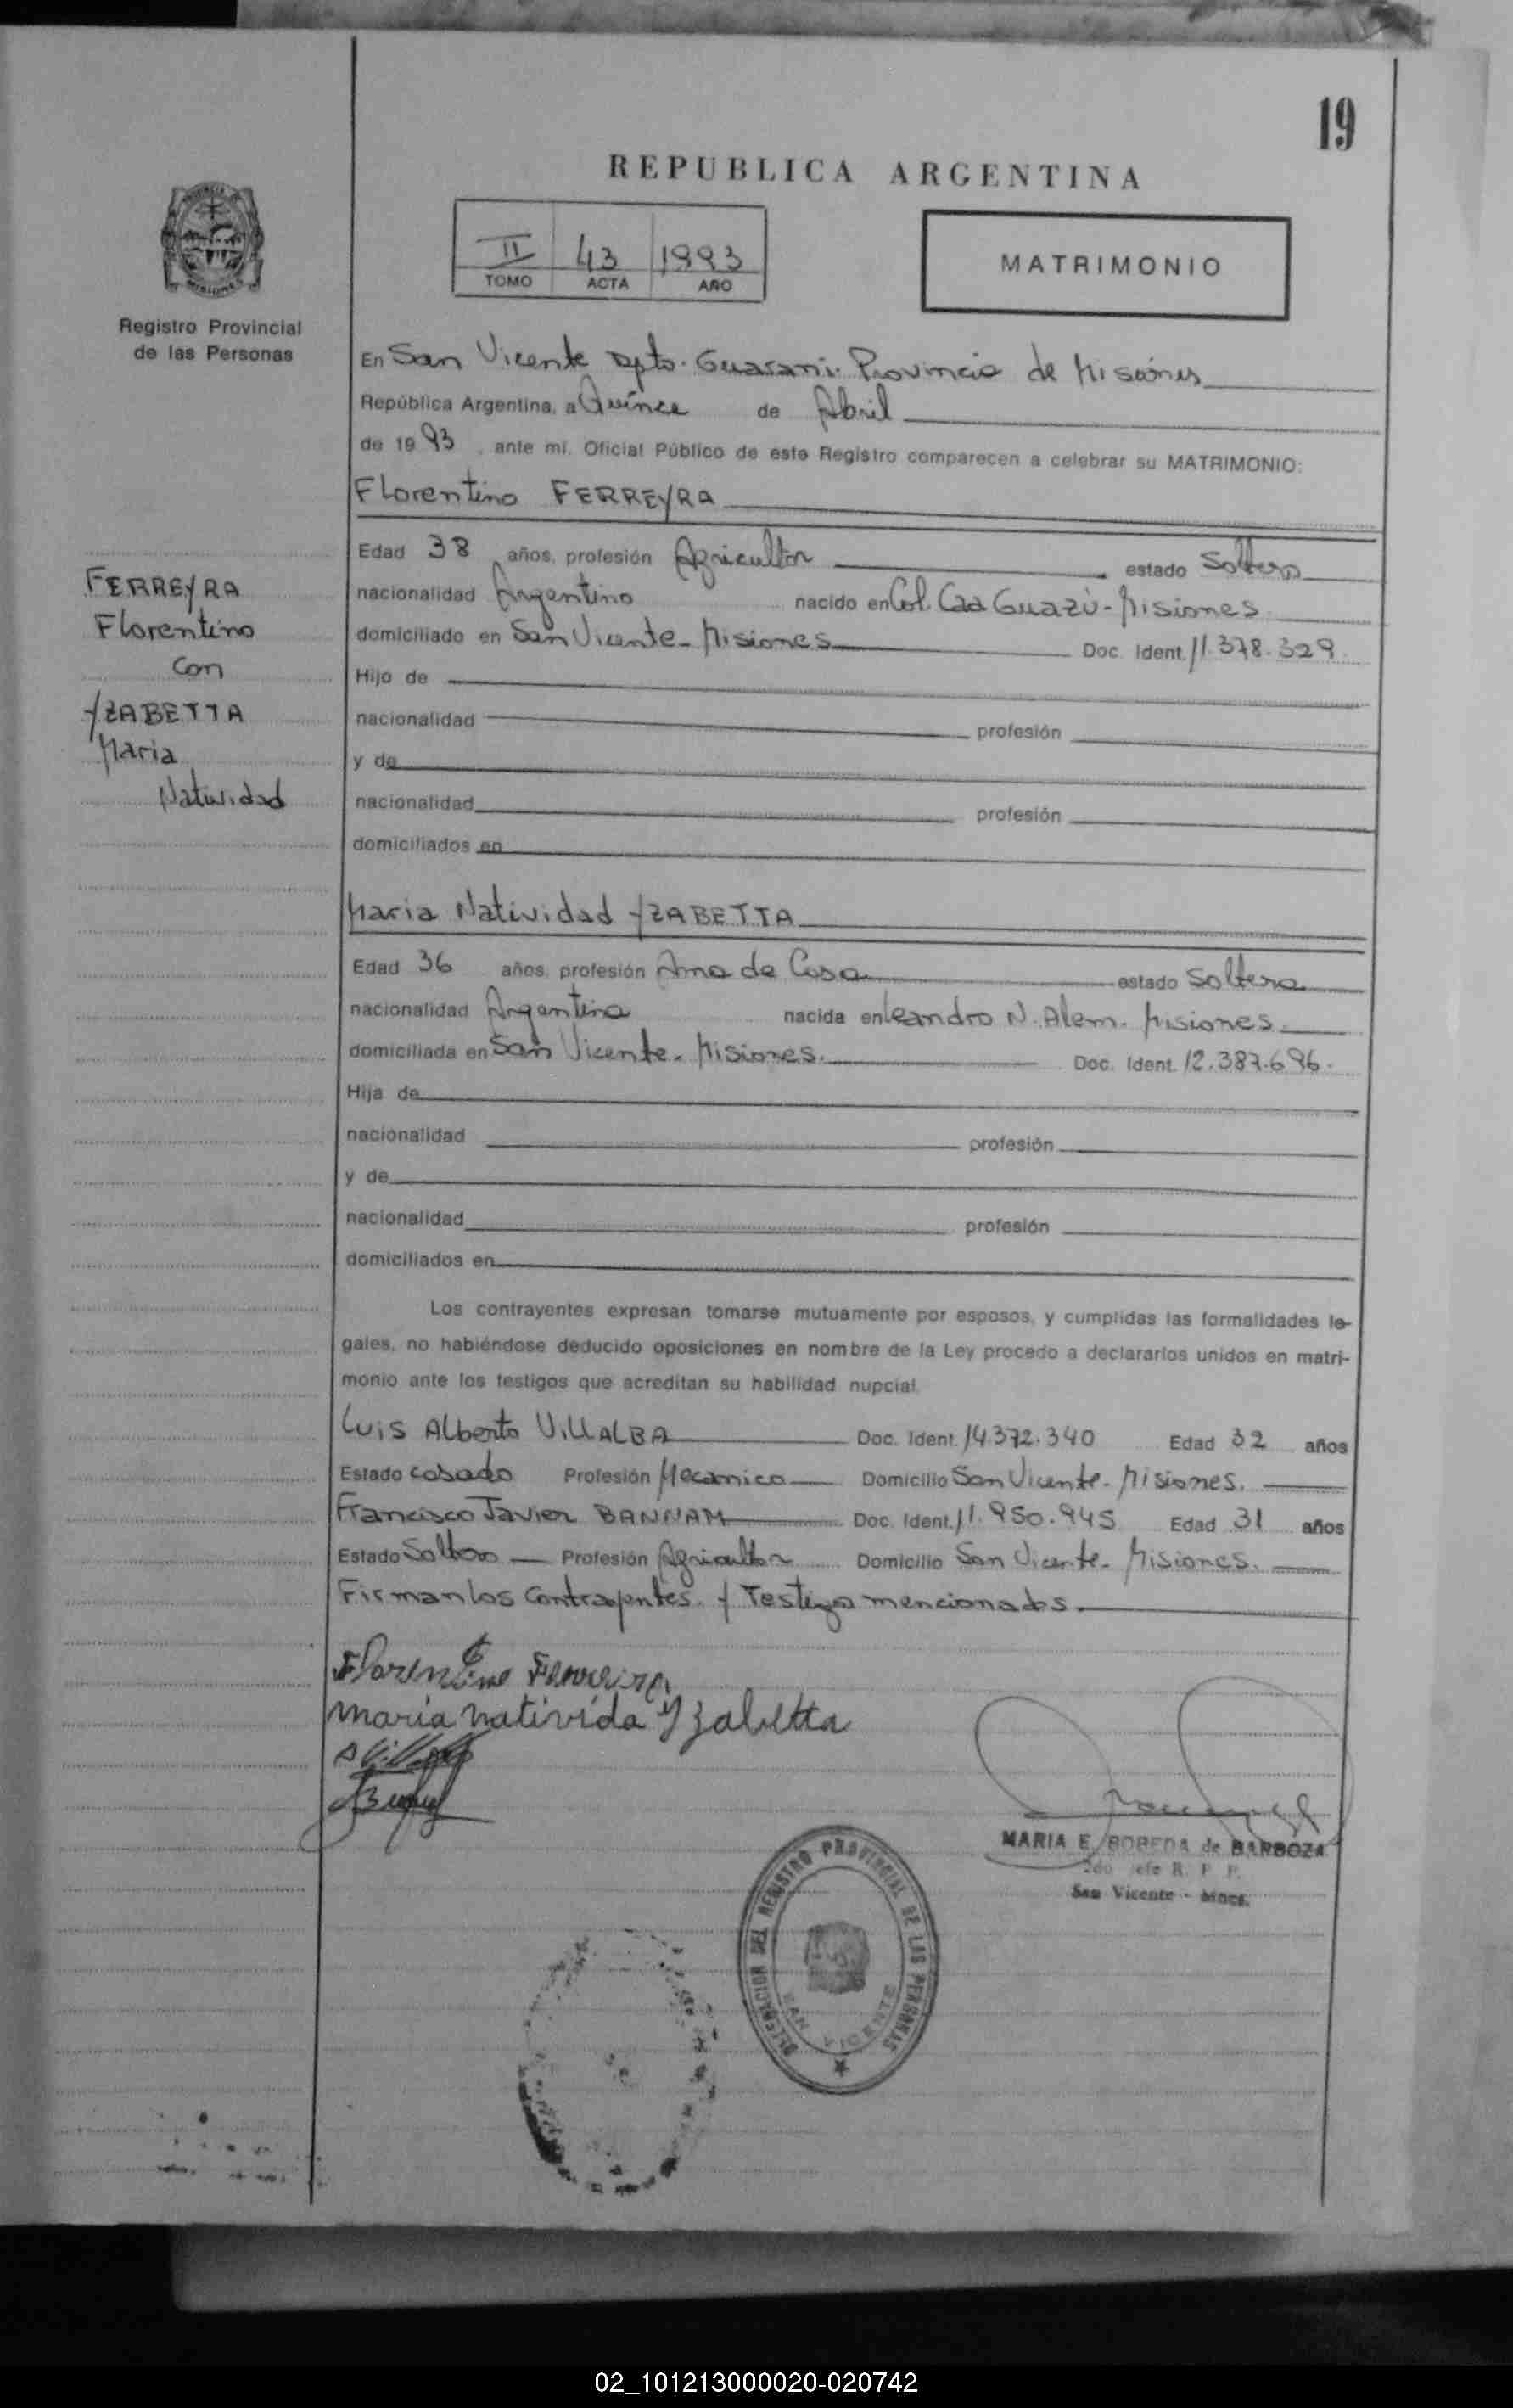 19
REPUBLICA ARGENTINA
II 43 1993
TOMO ACTA AÑO
MATRIMONIO
Registro Provincial
de las Personas
En San Vicente Dpto. Guarani. Provincia de Misiones
República Argentina, a Quince de Abril
de 1993, ante mí. Oficial Público de este Registro comparecen a celebrar su MATRIMONIO:
Florentino FERREYRA
Edad 38 años, profesión Agricultor estado Soltero
nacionalidad Argentino nacido en Col. Caa Guazú - Misiones
domiciliado en San Vicente - Misiones Doc. Ident. 11.378.329
Hijo de
nacionalidad profesión
y de
nacionalidad profesión
domiciliados en
FERREYRA
Florentino
Con
YZABETTA
Maria
Natividad
Maria Natividad YZABETTA
Edad 36 años, profesión Ama de Casa estado Soltera
nacionalidad Argentina nacida en Leandro N. Alem. Misiones
domiciliada en San Vicente - Misiones. Doc. Ident. 12.387.696.
Hija de
nacionalidad profesión
y de
nacionalidad profesión
domiciliados en
Los contrayentes expresan tomarse mutuamente por esposos, y cumplidas las formalidades le-
gales, no habiéndose deducido oposiciones en nombre de la Ley procedo a declararlos unidos en matri-
monio ante los testigos que acreditan su habilidad nupcial.
Luis Alberto VILLALBA Doc. Ident. 14.372.340 Edad 32 años
Estado casado Profesión Mecanico Domicilio San Vicente - Misiones.
Francisco Javier BANNAM Doc. Ident. 11.950.945 Edad 31 años
Estado Soltero Profesión Agricultor Domicilio San Vicente - Misiones.
Firman los Contrayentes. y Testigos mencionados.
Florentino Ferreira
maria nativida Yzabetta
MARIA E. BOREDA de BARBOZA
2do Jefe R. P. P.
San Vicente - Mnes.
DELEGACION DEL REGISTRO PROVINCIAL DE LAS PERSONAS
SAN VICENTE
02_101213000020-020742